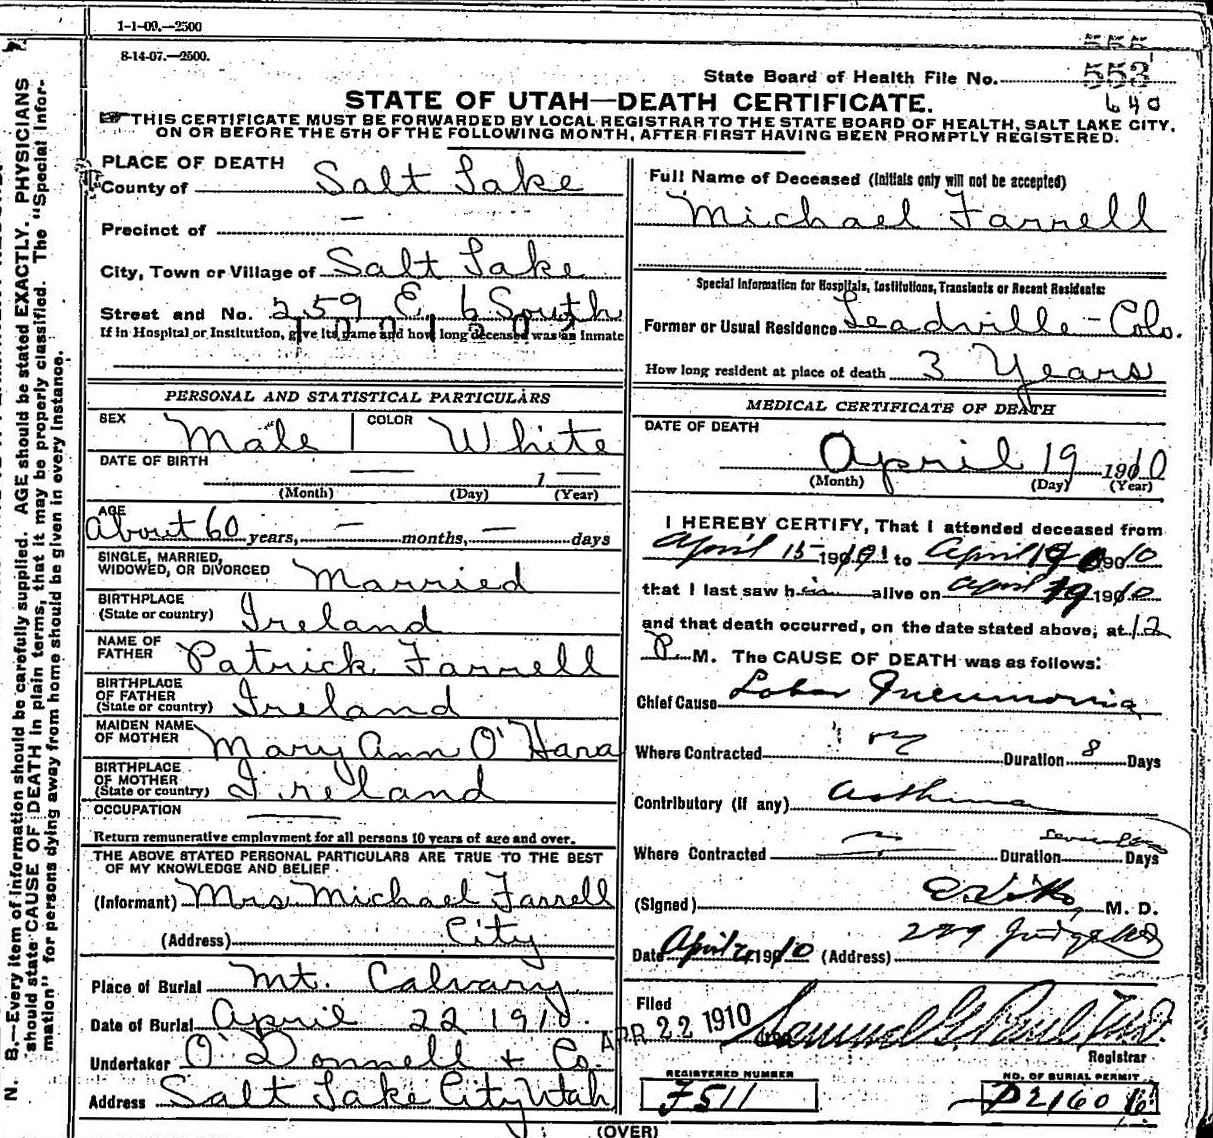 1-1-09.—2500
8-14-07.—2500.
555
State Board of Health File No. 553
640
STATE OF UTAH—DEATH CERTIFICATE.
THIS CERTIFICATE MUST BE FORWARDED BY LOCAL REGISTRAR TO THE STATE BOARD OF HEALTH, SALT LAKE CITY,
ON OR BEFORE THE 5TH OF THE FOLLOWING MONTH, AFTER FIRST HAVING BEEN PROMPTLY REGISTERED.
N. B.—Every item of information should be carefully supplied. AGE should be stated EXACTLY. PHYSICIANS
should state CAUSE OF DEATH in plain terms, that it may be properly classified. The "Special Infor-
mation" for persons dying away from home should be given in every instance.
PLACE OF DEATH
County of Salt Lake
Precinct of —
City, Town or Village of Salt Lake
Street and No. 259 E 6 South
If in Hospital or Institution, give its name and how long deceased was an inmate
PERSONAL AND STATISTICAL PARTICULARS
SEX Male COLOR White
DATE OF BIRTH — 1 —
(Month) (Day) (Year)
AGE
About 60 years, — months, — days
SINGLE, MARRIED,
WIDOWED, OR DIVORCED Married
BIRTHPLACE
(State or country) Ireland
NAME OF
FATHER Patrick Farrell
BIRTHPLACE
OF FATHER
(State or country) Ireland
MAIDEN NAME
OF MOTHER Mary Ann O'Hara
BIRTHPLACE
OF MOTHER
(State or country) Ireland
OCCUPATION —
Return remunerative employment for all persons 10 years of age and over.
THE ABOVE STATED PERSONAL PARTICULARS ARE TRUE TO THE BEST
OF MY KNOWLEDGE AND BELIEF
(Informant) Mrs Michael Farrell
(Address) City
Place of Burial Mt. Calvary
Date of Burial April 22 1910.
Undertaker O'Donnell & Co.
Address Salt Lake City Utah
Full Name of Deceased (Initials only will not be accepted)
Michael Farrell
Special Information for Hospitals, Institutions, Transients or Recent Residents:
Former or Usual Residence Leadville - Colo.
How long resident at place of death 3 Years
MEDICAL CERTIFICATE OF DEATH
DATE OF DEATH
April 19 1910
(Month) (Day) (Year)
I HEREBY CERTIFY, That I attended deceased from
April 15 1910 to April 19 1910
that I last saw him alive on April 19 1910
and that death occurred, on the date stated above, at 12
P. M. The CAUSE OF DEATH was as follows:
Chief Cause Lobar Pneumonia
Where Contracted Duration 8 Days
Contributory (if any) Asthma
Where Contracted Duration Days
(Signed) M. D.
Date April 1910 (Address) 229 Judge Bld
Filed APR 22 1910
Registrar
REGISTERED NUMBER
F511
NO. OF BURIAL PERMIT
P2160
(OVER)